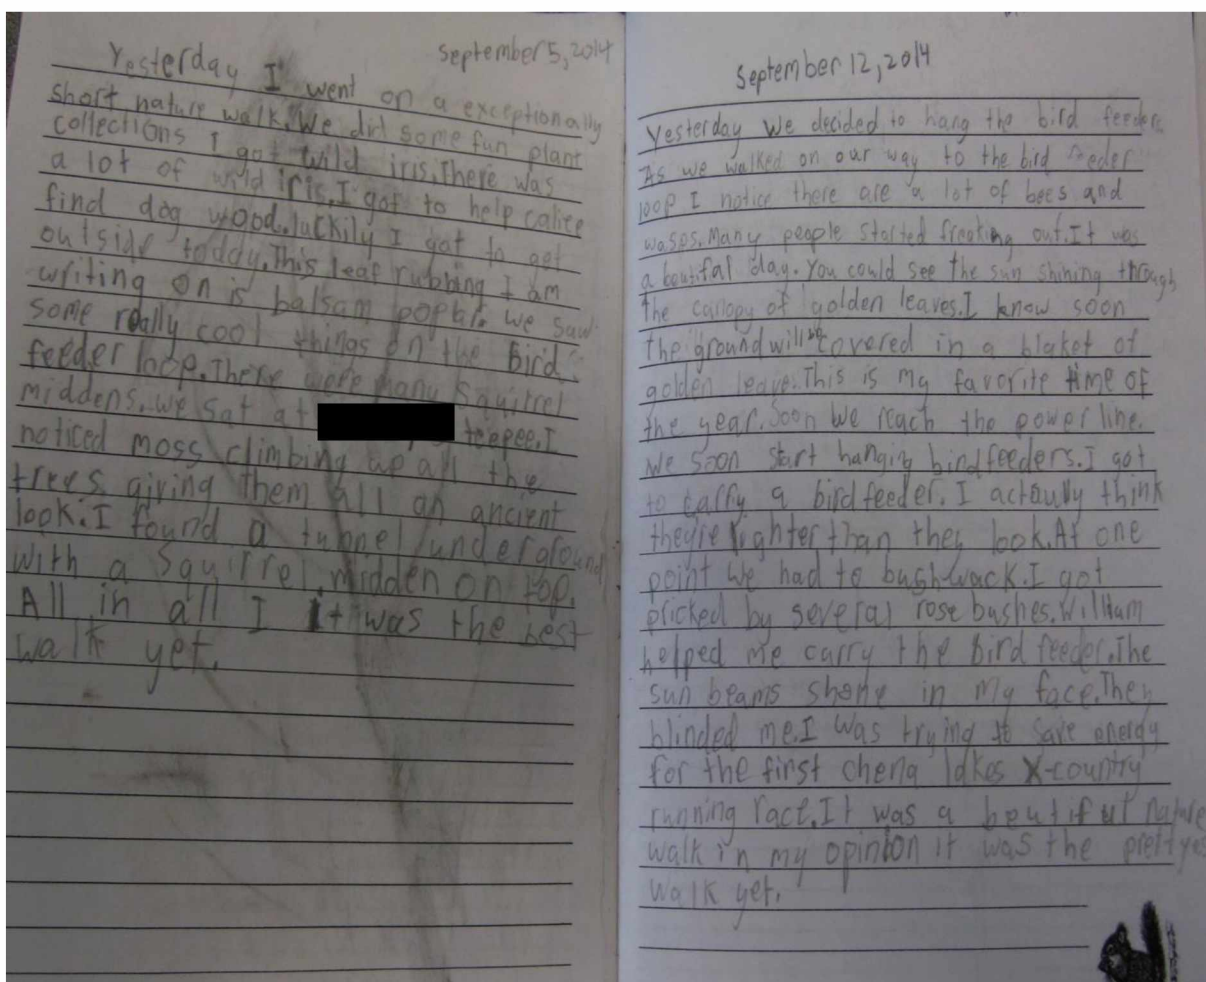 September 5, 2014
Yesterday I went on a exceptionally
short nature walk. We did some fun plant
collections I got wild iris. There was
a lot of wild iris. I got to help calice
find dog wood. luckily I got to get
outside today. This leaf rubbing I am
writing on is balsam poplar. we saw
some really cool things on the bird
feeder loop. There were many squirrel
middens. we sat at teepee. I
noticed moss climbing up all the
trees giving them all an ancient
look. I found a tunnel underground
with a squirrel midden on top.
All in all I it was the best
walk yet.
September 12, 2014
Yesterday we decided to hang the bird feeders
As we walked on our way to the bird feeder
loop I notice there are a lot of bees and
wasps. Many people started freaking out. It was
a beutifal day. You could see the sun shining through
the canopy of golden leaves. I know soon
the ground will be covered in a blaket of
golden leave. This is my favorite time of
the year. Soon we reach the power line.
We soon start hanging birdfeeders. I got
to carry a birdfeeder. I actaully think
they're lighter than they look. At one
point we had to bushwack. I got
pricked by several rose bushes. William
helped me carry the bird feeder. The
sun beams shone in my face. They
blinded me. I was trying to save energy
for the first chena lakes X-country
running race. It was a beutiful nature
walk in my opinion it was the prettyes
walk yet.